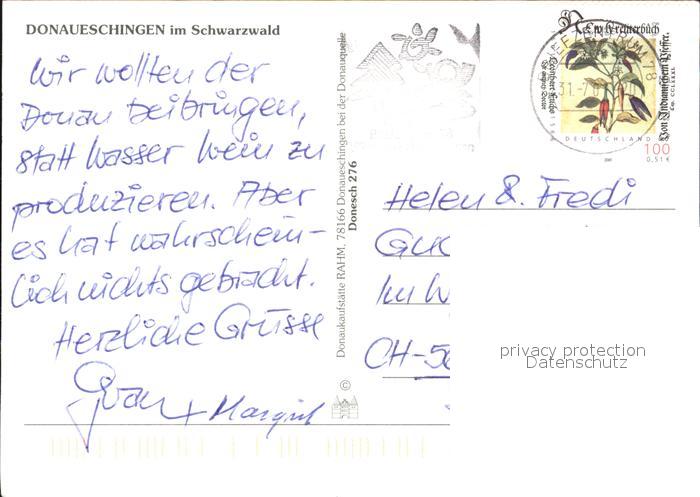 DONAUESCHINGEN im Schwarzwald
Wir wollten der
Donau beibringen,
statt Wasser Wein zu
produzieren. Aber
es hat wahrschein-
lich nichts gebracht.
Herzliche Grüsse
+ Margrit
Donaukaufstätte RAHM, 78166 Donaueschingen bei der Donauquelle
Donesch 276
©
BRIEFZENTRUM 78
31.-7.01
New Kreüterbüch
Von Indianischem Pfeffer.
DEUTSCHLAND
100
0,51 €
2001
Helen & Fredi
Im W
CH-56
privacy protection
Datenschutz